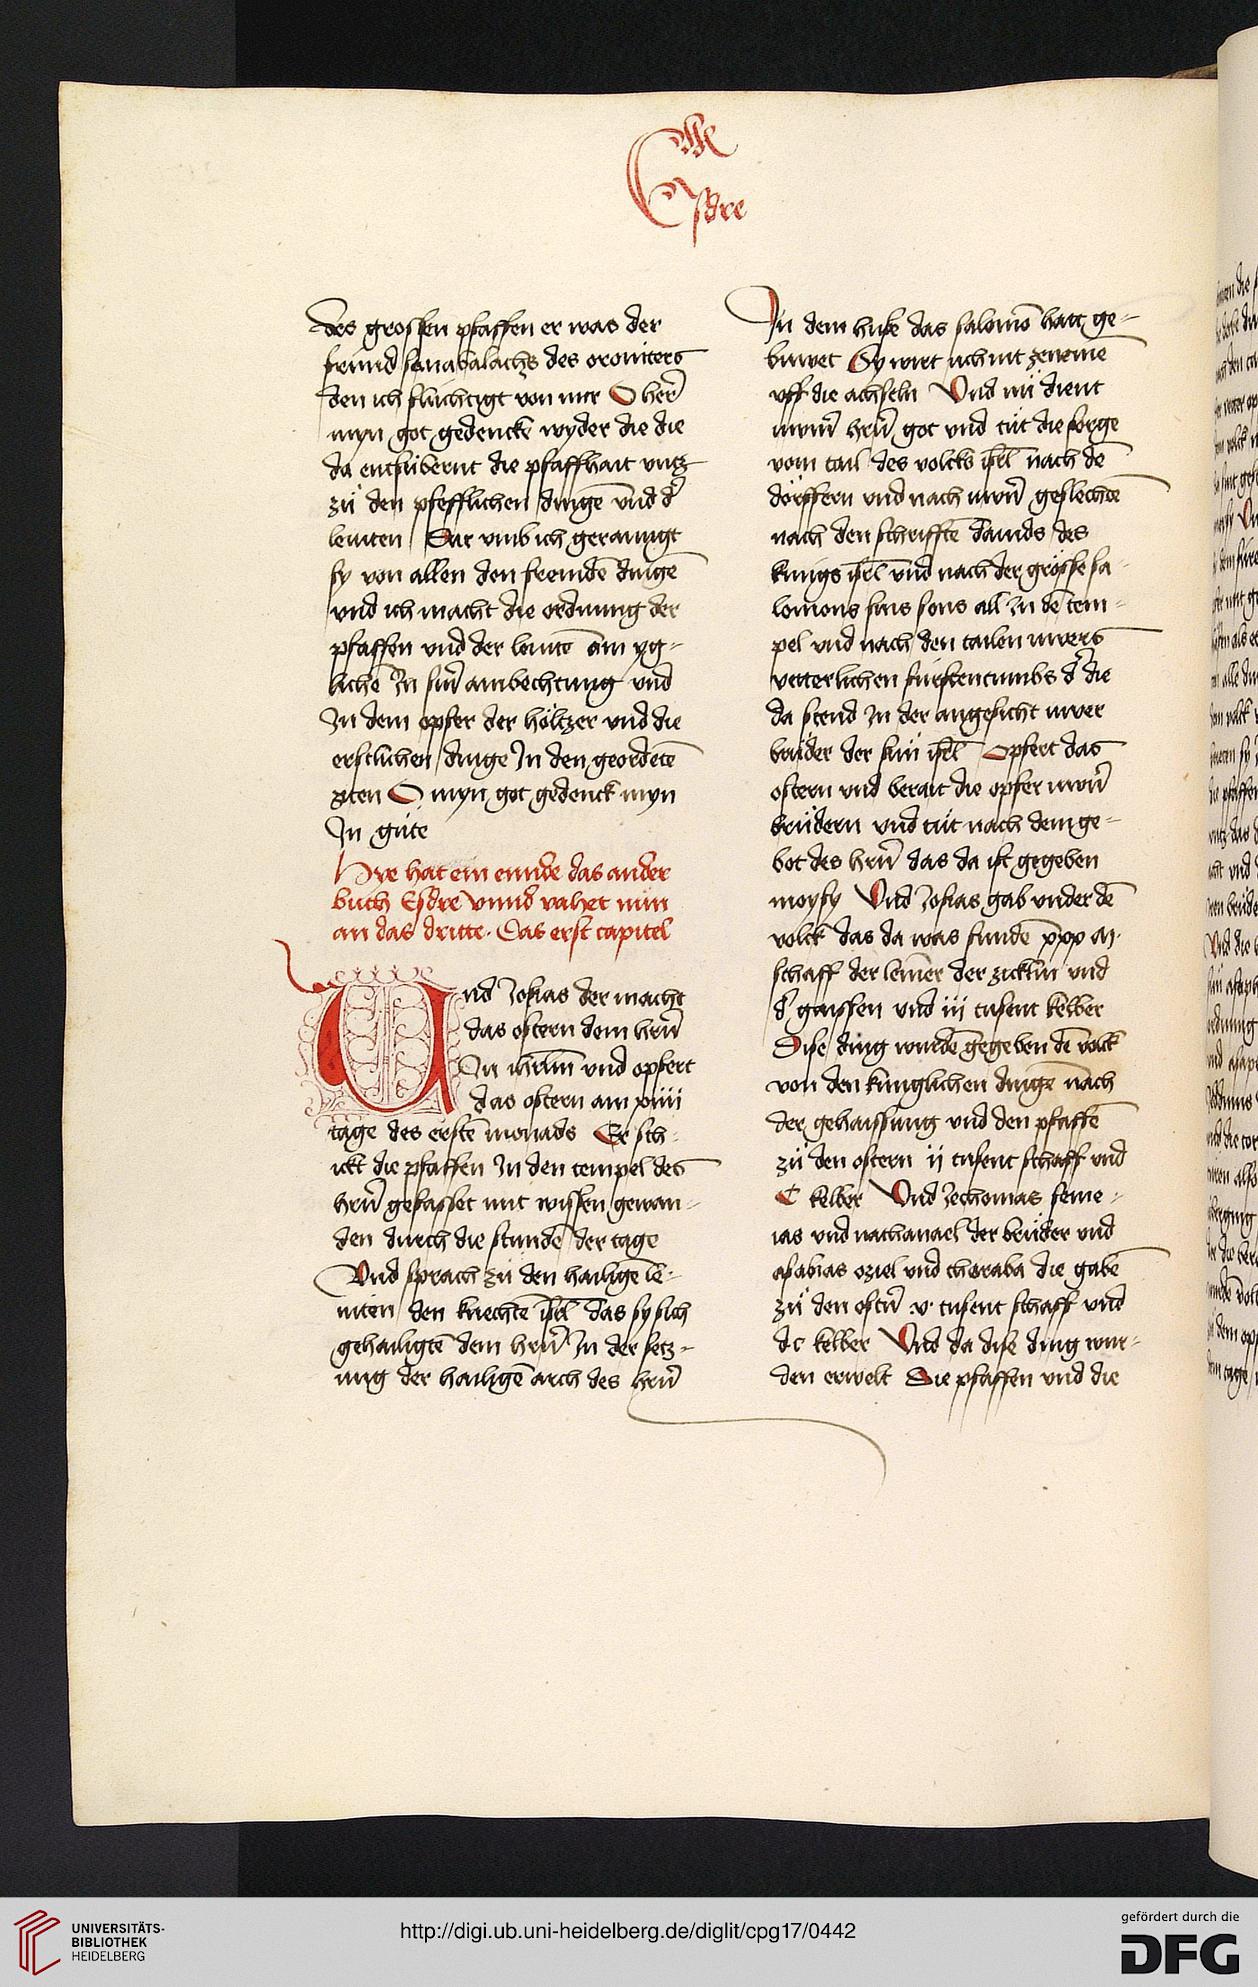 Esdre
des grossen pfaffen er was der
freünd senabalachs des oroniters
den ich flüchtigt von mir O herr̄
myn got gedenck wyder die die
da entsübernt die pfaffhait vntz
zü den pfefflichen dingē vnd d'
leuiten Dar vmb ich gerainigt
sy von allen den fremdē dingē
vnd ich macht die ordnung der
pfaffen vnd der leuitē ain yg-
lichē In sinr̄ ambechtung vnd
In dem opfer der höltzer vnd die
erstlichen dinge In den geordētē
ziten O myn got gedenck myn
In güte
Hye hat ein ennde das ander
buch Esdre vnnd vahet nün
an das dritte. Das erst capitel
Vnd Josias der macht
das ostern dem hrn̄
In ihrlm̄ vnd opfert
das ostern am xiiii
tage des erstē monads Er sch-
ickt die pfaffen In den tempel des
hrn̄ gefasset mit wissen gewan-
den durch die stundē der tage
Vnd sprach zü den hailigē le-
uiten den knechtē isrl̄ das sy sich
gehailigtē dem hrn̄ In der setz-
ung der hailigē arch des hrn̄
In dem huse das salomō hatt ge-
buwet Sy wirt üch nit zenemē
vff die achseln Vnd nü dient
uwrm̄ hrn̄ got vnd tüt die sorge
vom tail des volcks isrl̄ nach dē
dörffern vnd nach uwrn̄ geslechtē
nach den schrifftē dauids des
künigs isrl̄ vnd nach der grösse sa-
lomons sins sons all In dē tem-
pel vnd nach den tailen uwers
vetterlichen fürstentumbs d' die
da stend In der angesicht uwer
brüder der sün isrl̄ Opfert das
ostern vnd berait die opfer uwrn̄
brüdern vnd tüt nach dem ge-
bot des hrn̄ das da ist gegeben
moysy Vnd Josias gab vnder dē
volck das da was fundē xxx M.
schaff der lemer der zicklin vnd
d' gaissen vnd iij tusent kelber
Dise ding wurdē gegeben dē volck
von den künglichen dingē nach
der gehaissung vnd den pfaffē
zü den ostern ij tusent schaff vnd
C kelber Vnd Jechomas seme-
ias vnd nathanael der brüder vnd
asabias oziel vnd choraba die gabē
zü den ostrn̄ v tusent schaff vnd
dc kelber Vnd da dise ding wur-
den erwelt Die pfaffen vnd die
UNIVERSITÄTS-
BIBLIOTHEK
HEIDELBERG
http://digi.ub.uni-heidelberg.de/diglit/cpg17/0442
gefördert durch die
DFG